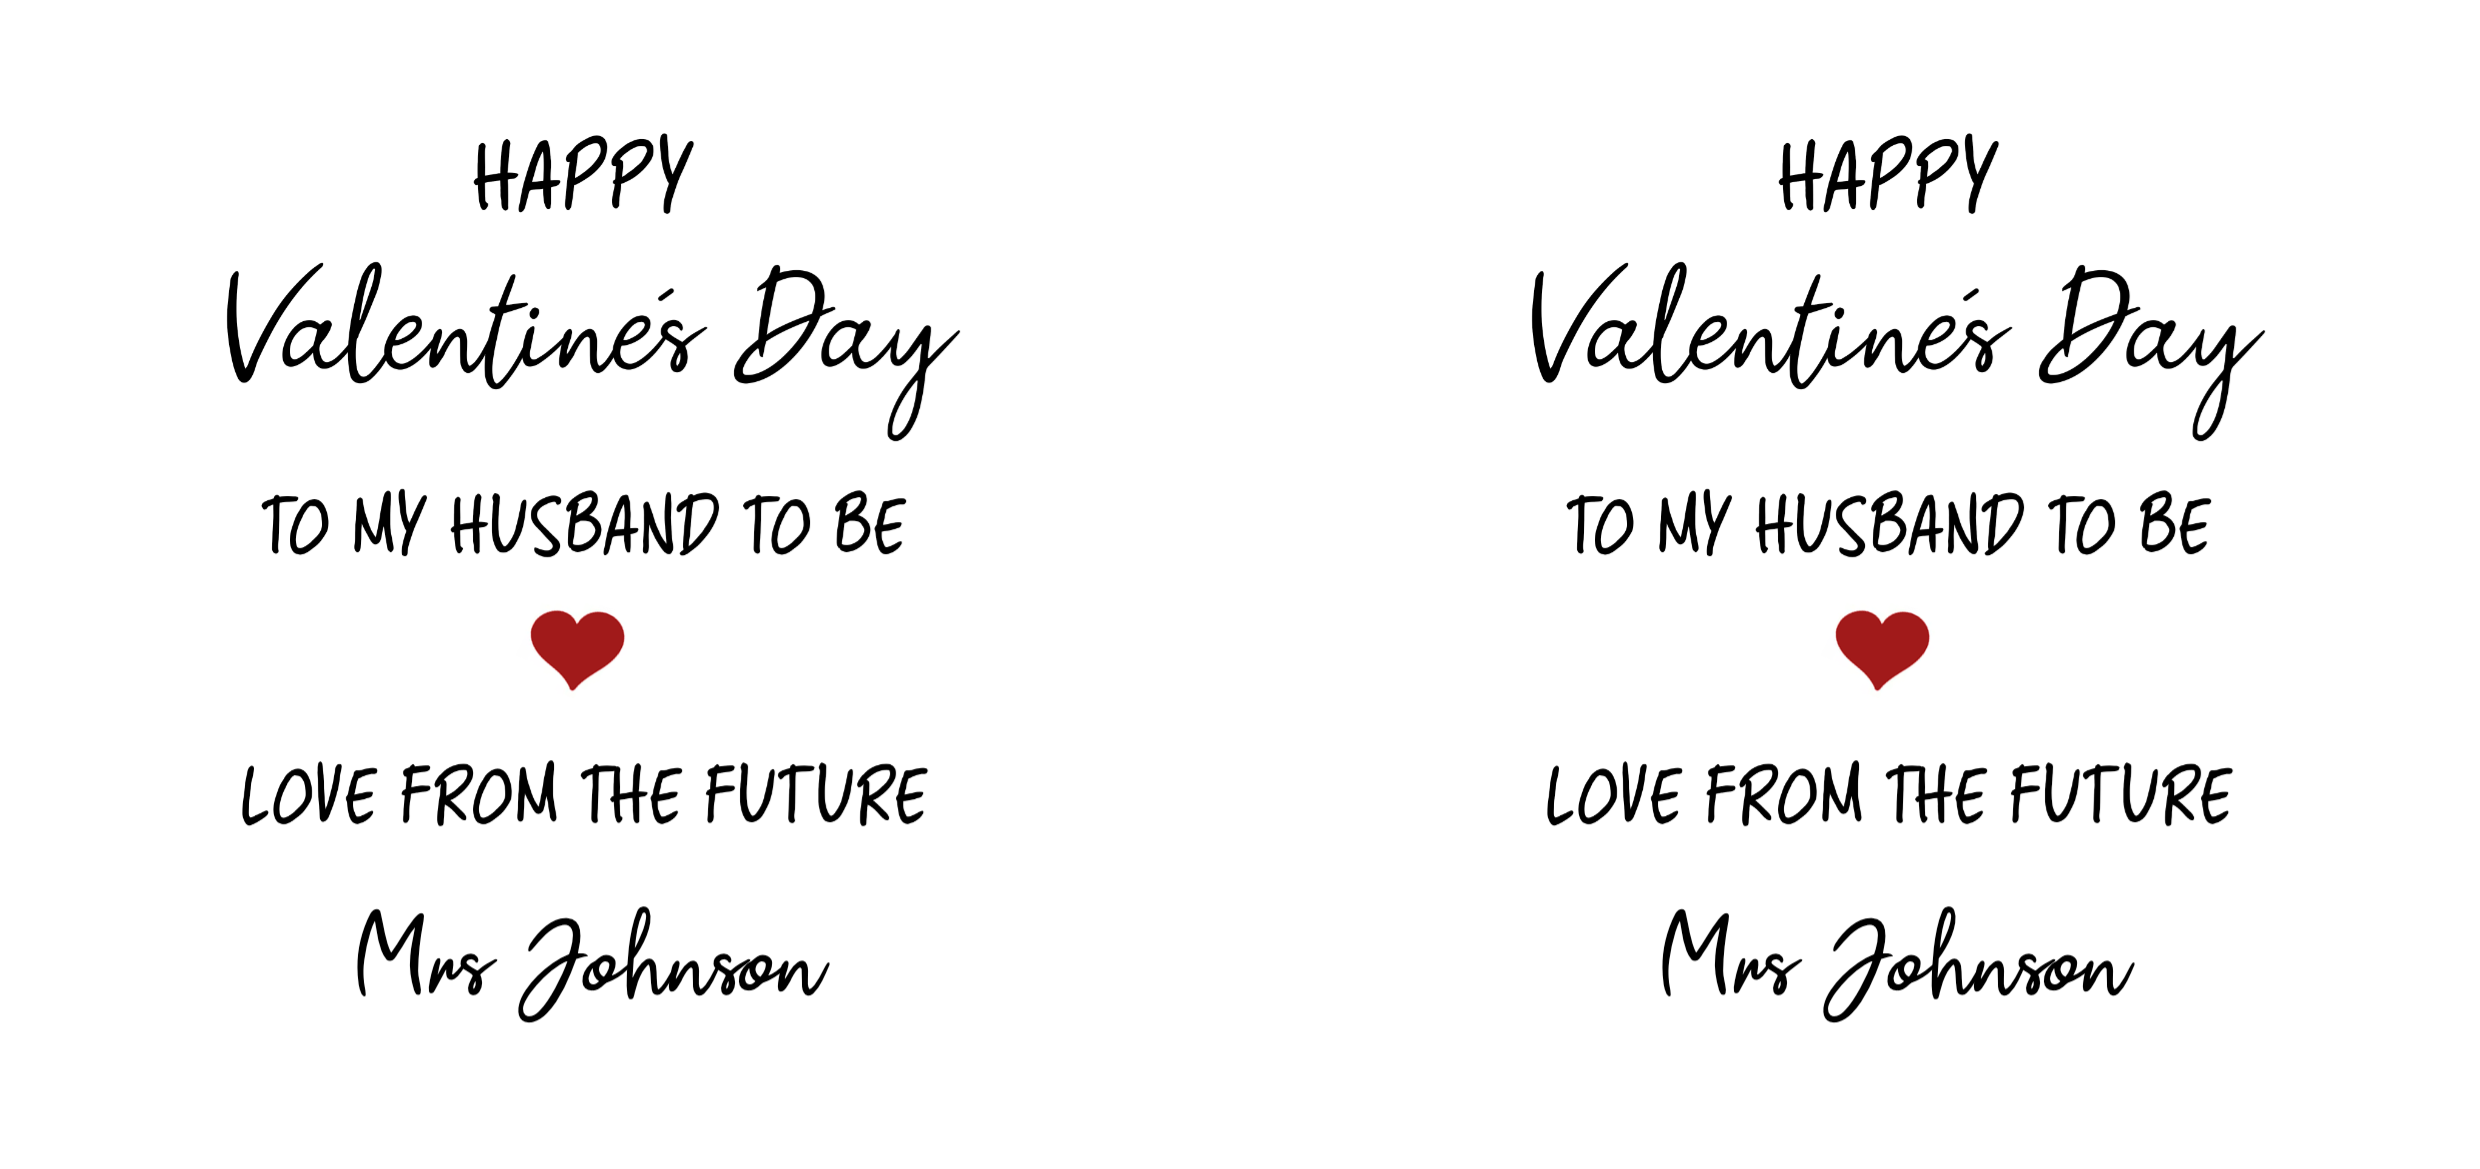 HAPPY
Valentine's Day
TO MY HUSBAND TO BE
LOVE FROM THE FUTURE
Mrs Johnson
HAPPY
Valentine's Day
TO MY HUSBAND TO BE
LOVE FROM THE FUTURE
Mrs Johnson